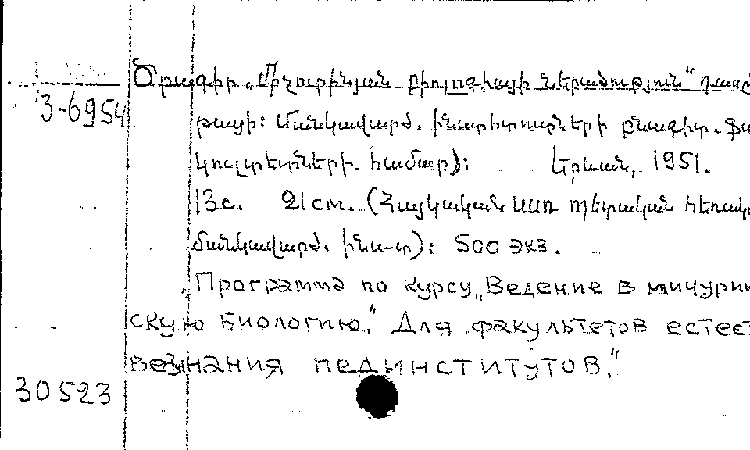 Ծրագիր „Միչուրինյան բիոլոգիայի ներածություն" դասը
3-6954
թացի: Մանկավարժ. ինստիտուտների բնագիտ. ֆա
կուլտետների համար):   Երևան, 1951.
13с. 21см. (Հայկական ՍՍՌ պետական հեռակ
մանկավարժ. ինս-տ): 500 экз.
„Программа по курсу „Ведение в мичурин
скую биологию." Для факультетов естест
вознания пединститутов."
30523